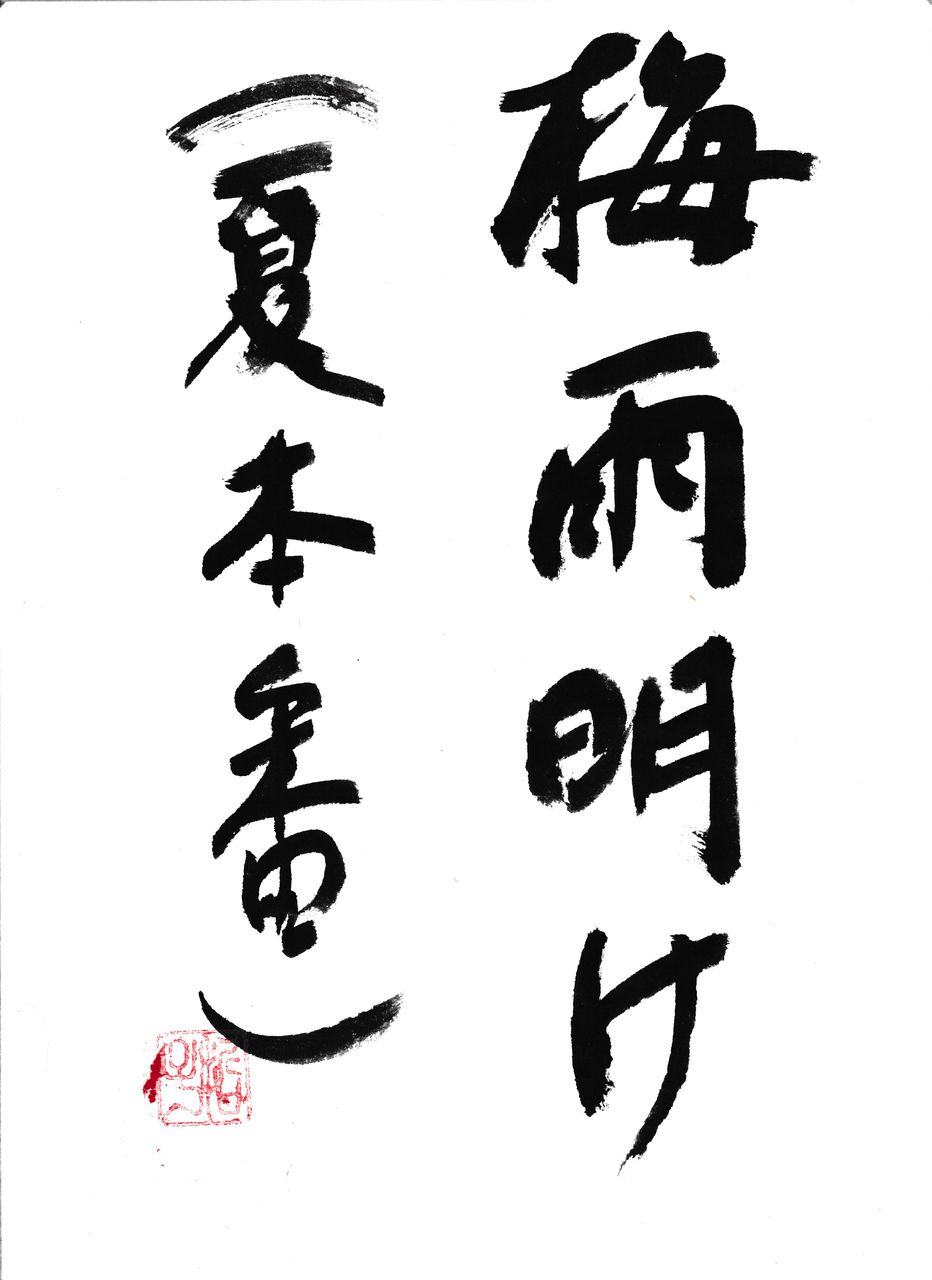 梅雨明け
（夏本番）